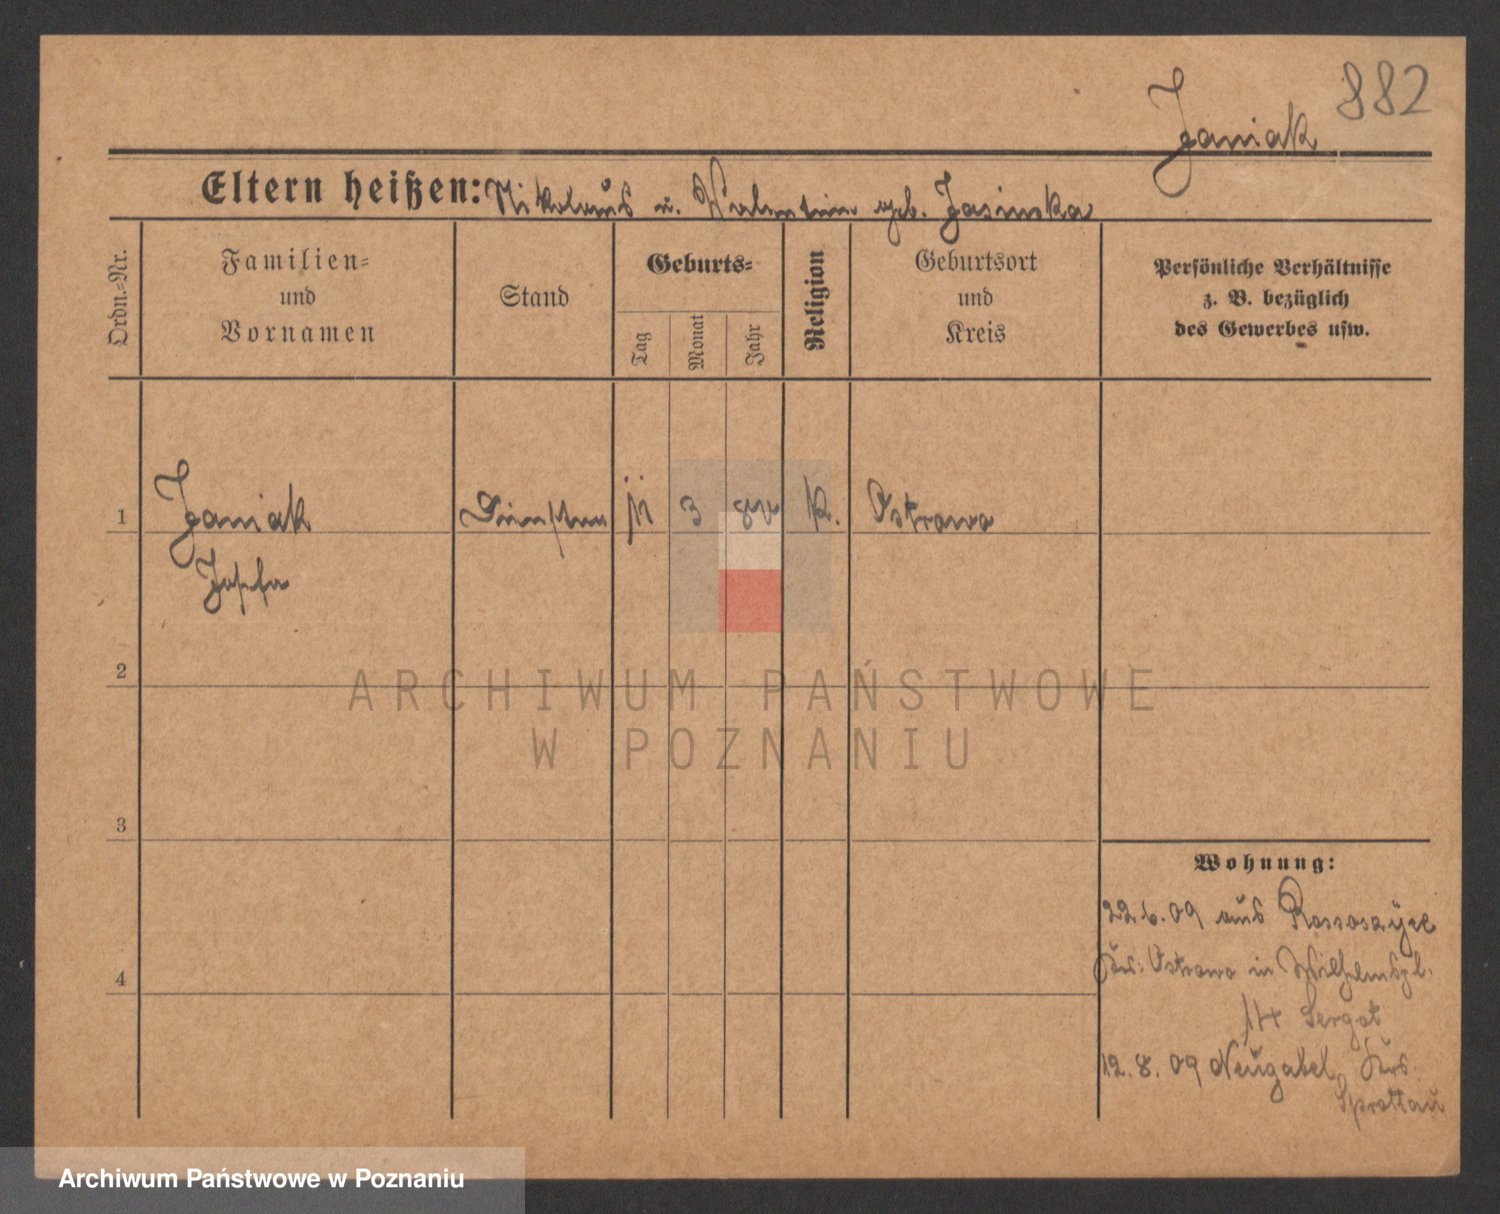 882
Janiak
Eltern heißen: Nikolaus u. Valentin geb. Jasinska
Ordn.-Nr.
Familien-
und
Vornamen
Stand
Geburts-
Tag
Monat
Jahr
Religion
Geburtsort
und
Kreis
Persönliche Verhältnisse
z. B. bezüglich
des Gewerbes usw.
1 Janiak 3 K. Ostrowo
Josefa
2
ARCHIWUM PAŃSTWOWE
W POZNANIU
3
Wohnung:
22.6.09 aus
Krs. Ostrowo in Wilhelmspl.
14 Sergot
4
12.8.09 Neugabel Krs.
Sprottau
Archiwum Państwowe w Poznaniu